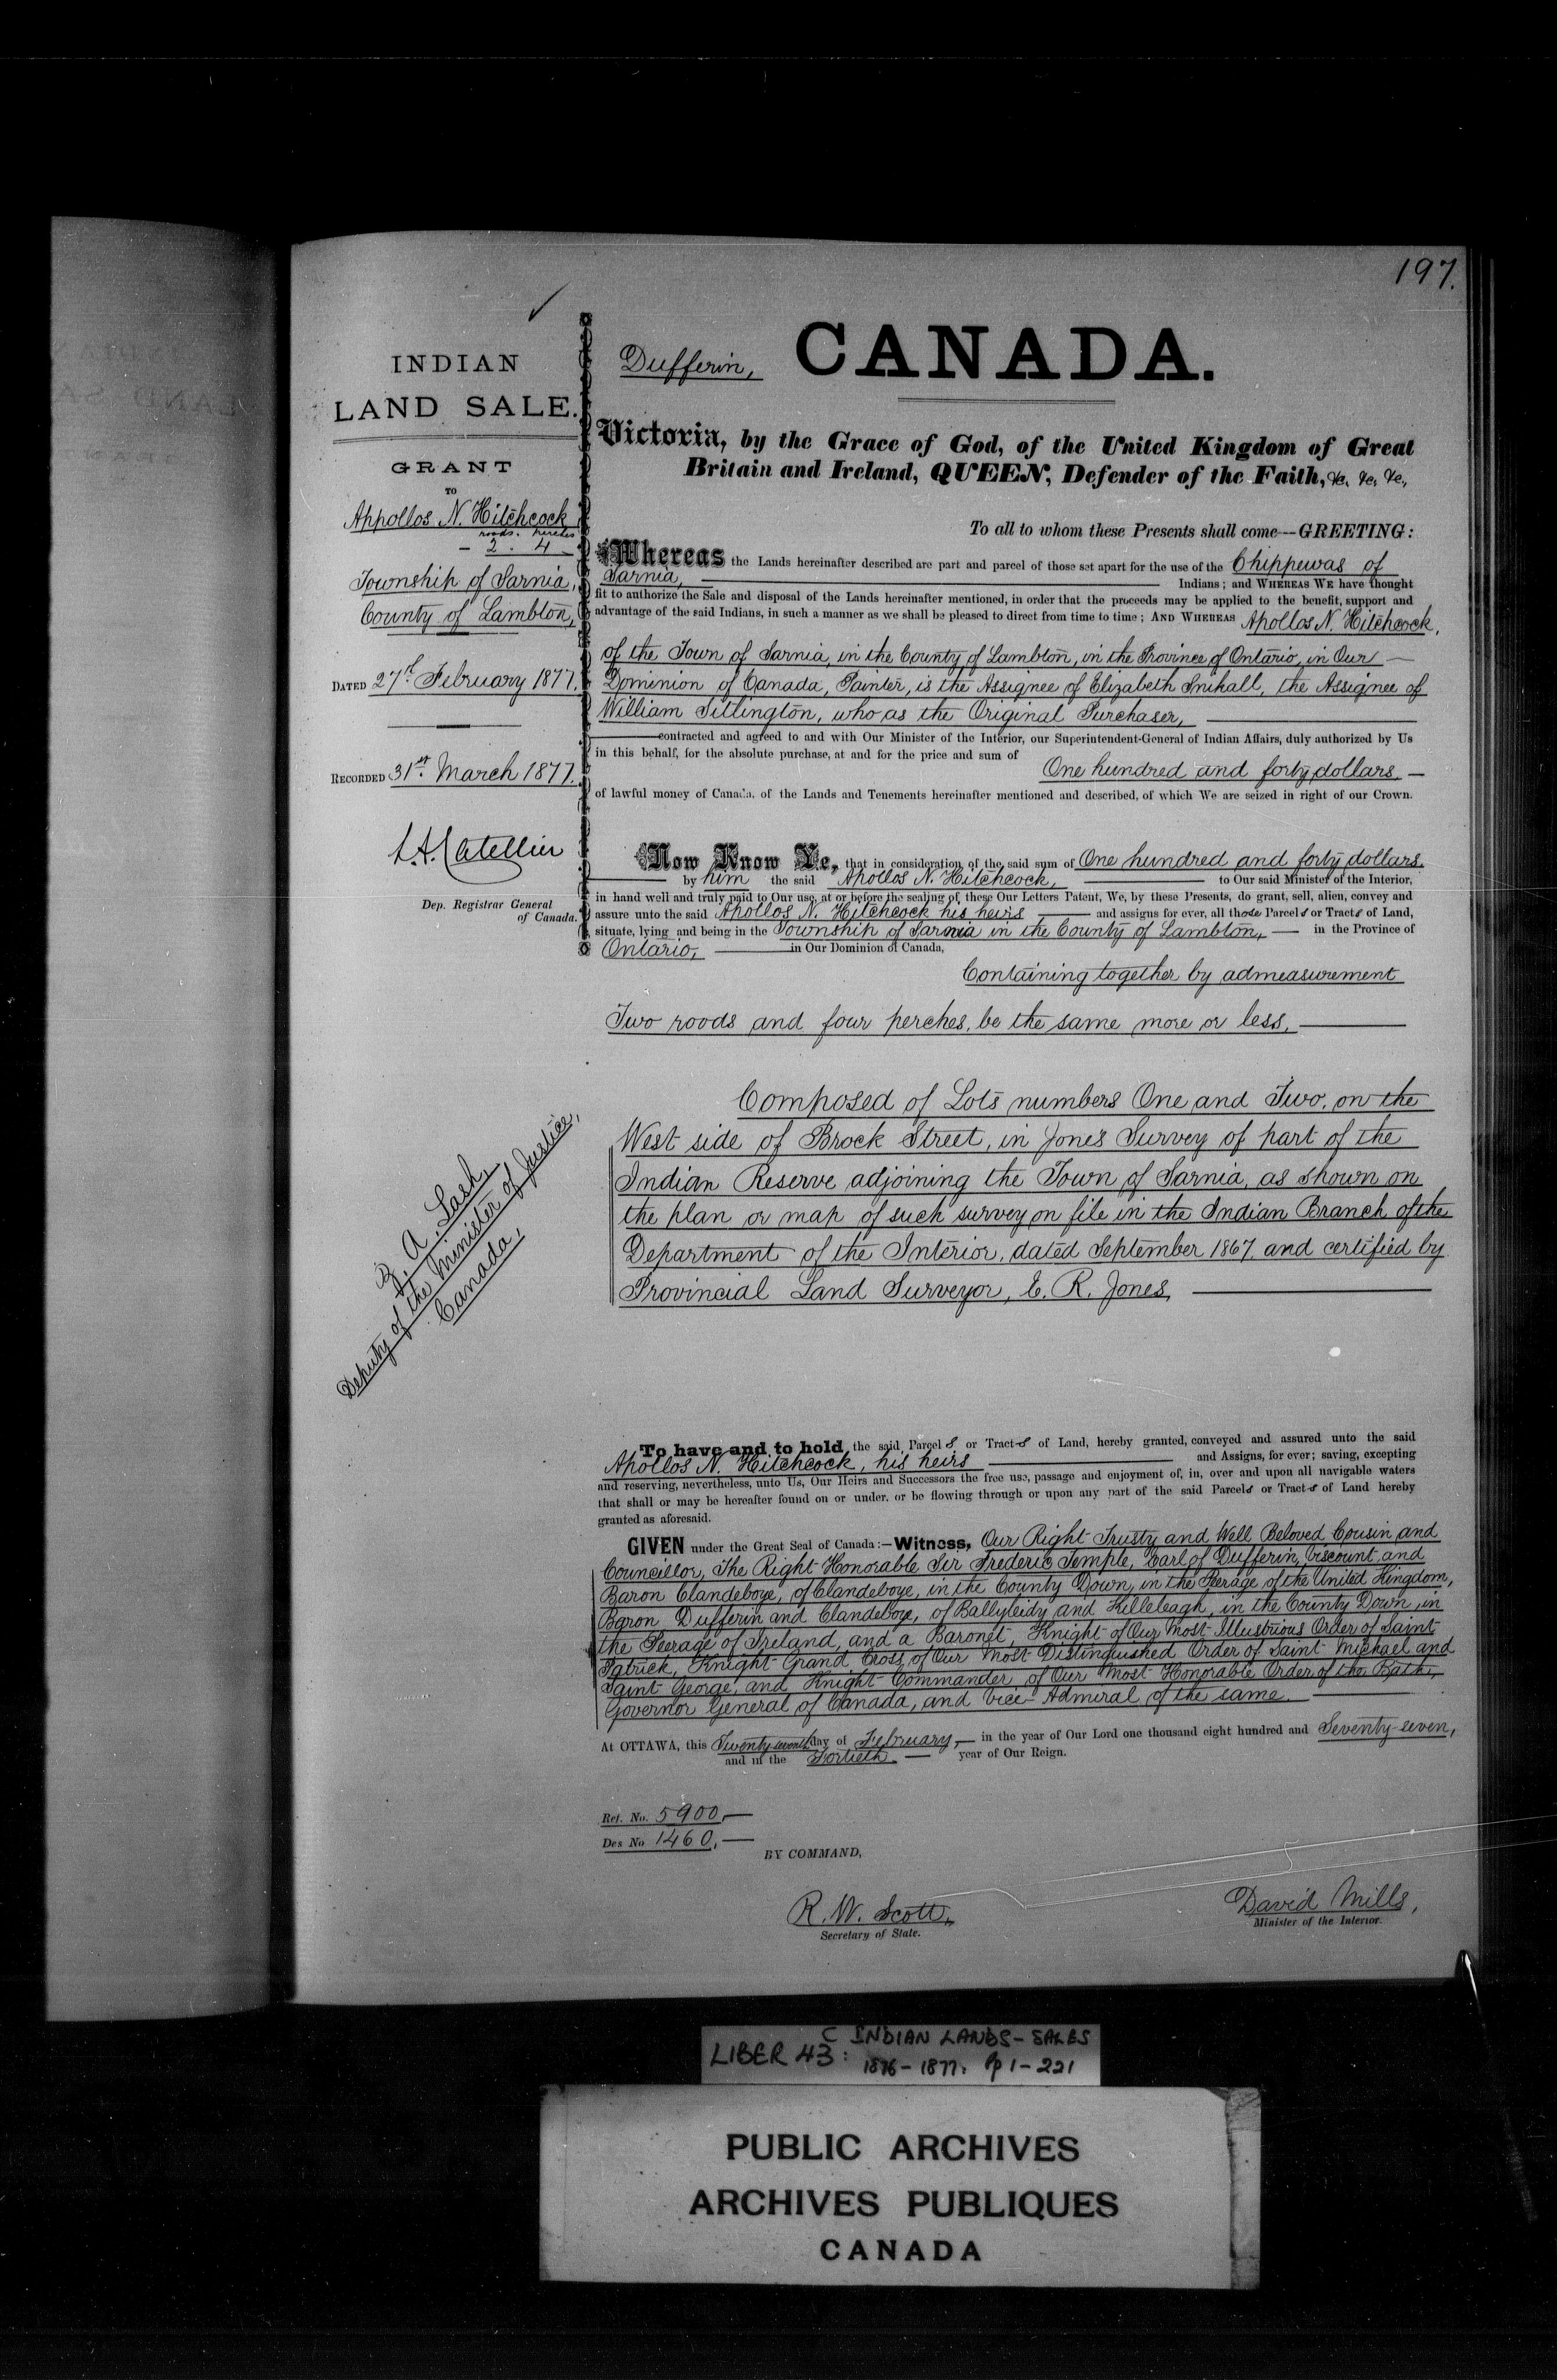 197.
INDIAN
LAND SALE.
GRANT
TO
Appollos N. Hitchcock
roods. perches
- 2 . 4 -
Township of Sarnia,
County of Lambton,
DATED 27th February 1877.
RECORDED 31st March 1877.
Dep. Registrar General
of Canada.
Z. A. Lash,
Deputy of the Minister of Justice,
Canada,
Dufferin,
CANADA.
Victoria, by the Grace of God, of the United Kingdom of Great
Britain and Ireland, QUEEN, Defender of the Faith, &c, &c, &c,
To all to whom these Presents shall come---GREETING:
Whereas the Lands hereinafter described are part and parcel of those set apart for the use of the Chippewas of
Sarnia, Indians; and WHEREAS WE have thought
fit to authorize the Sale and disposal of the Lands hereinafter mentioned, in order that the proceeds may be applied to the benefit, support and
advantage of the said Indians, in such a manner as we shall be pleased to direct from time to time; AND WHEREAS Apollos N. Hitchcock,
of the Town of Sarnia, in the County of Lambton, in the Province of Ontario, in Our
Dominion of Canada, Painter, is the Assignee of Elizabeth the Assignee of
William Sittington, who as the Original Purchaser,
contracted and agreed to and with Our Minister of the Interior, our Superintendent-General of Indian Affairs, duly authorized by Us
in this behalf, for the absolute purchase, at and for the price and sum of
One hundred and forty dollars,
of lawful money of Canada, of the Lands and Tenements hereinafter mentioned and described, of which We are seized in right of our Crown.
Now Know Ye, that in consideration of the said sum of One hundred and forty dollars.
by him the said Apollos N. Hitchcock, to Our said Minister of the Interior,
in hand well and truly paid to Our use, at or before the sealing of, these Our Letters Patent, We, by these Presents, do grant, sell, alien, convey and
assure unto the said Apollos N. Hitchcock his heirs and assigns for ever, all those Parcels or Tracts of Land,
situate, lying and being in the Township of Sarnia in the County of Lambton, in the Province of
Ontario, in Our Dominion of Canada,
Containing together by admeasurement
Two roods and four perches, be the same more or less,
Composed of Lots numbers One and Two, on the
West side of Brock Street, in Jones Survey of part of the
Indian Reserve adjoining the Town of Sarnia, as shown on
the plan or map of such survey on file in the Indian Branch of the
Department of the Interior, dated September 1867, and certified by
Provincial Land Surveyor, E. R. Jones,
To have and to hold the said Parcels or Tracts of Land, hereby granted, conveyed and assured unto the said
Apollos N. Hitchcock, his heirs and Assigns, for ever; saving, excepting
and reserving, nevertheless, unto Us, Our Heirs and Successors the free use, passage and enjoyment of, in, over and upon all navigable waters
that shall or may be hereafter found on or under, or be flowing through or upon any part of the said Parcels or Tracts of Land hereby
granted as aforesaid.
GIVEN under the Great Seal of Canada:—Witness, Our Right Trusty and Well Beloved Cousin and
Councillor, The Right Honorable Sir Frederic Temple, Earl of Dufferin, Viscount and
Baron Clandeboye, of Clandeboye, in the County Down, in the Peerage of the United Kingdom,
Baron Dufferin and Clandeboye, of Ballyleidy and Killeleagh, in the County Down, in
the Peerage of Ireland, and a Baronet, Knight of Our Most Illustrious Order of Saint
Patrick, Knight Grand Cross of Our Most Distinguished Order of Saint Michael and
Saint George, and Knight Commander of Our Most Honorable Order of the Bath,
Governor General of Canada, and Vice-Admiral of the same.
At OTTAWA, this Twenty-seventh day of February, in the year of Our Lord one thousand eight hundred and Seventy-seven,
and in the Fortieth year of Our Reign.
Ref. No. 5900,
Des No 1460,
BY COMMAND,
R. W. Scott,
Secretary of State.
David Mills,
Minister of the Interior.
LIBER 43: C INDIAN LANDS - SALES
1876 - 1877: pp 1 - 221
PUBLIC ARCHIVES
ARCHIVES PUBLIQUES
CANADA